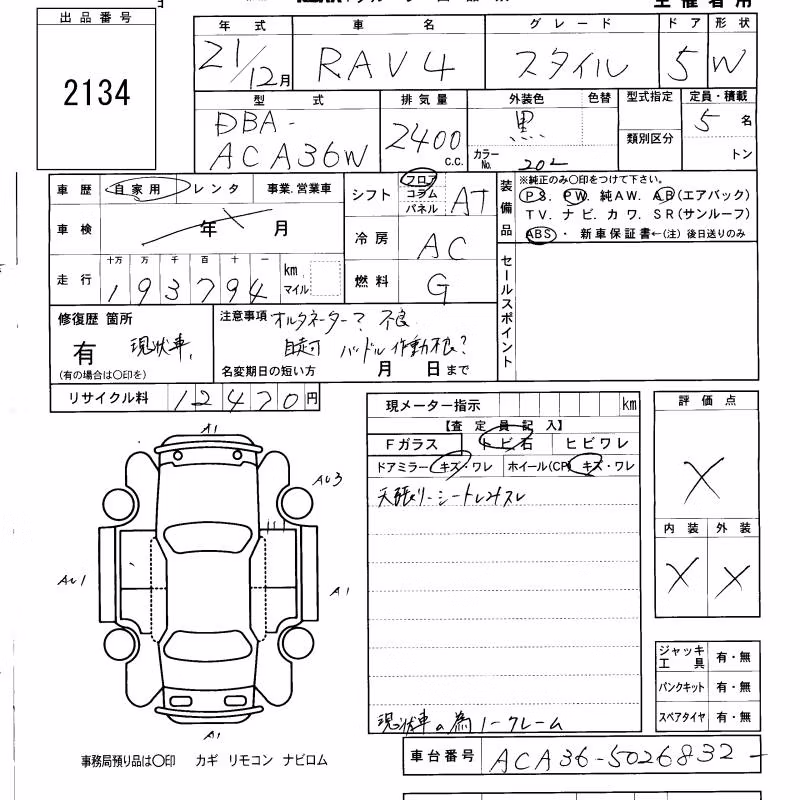 出品番号
2134
年式 車名 グレード ドア 形状
21/12月 RAV4 スタイル 5 W
型式 排気量 外装色 色替 型式指定 定員・積載
DBA-
ACA36W
2400 c.c.
黒
カラーNo. 202
類別区分
5名
トン
車歴 自家用 レンタ 事業、営業車
車検 年 月
走行 十万 万 千 百 十 一
193794 km マイル
シフト フロア コラム パネル AT
冷房 AC
燃料 G
装備品
※純正のみ○印をつけて下さい。
PS. PW. 純AW. AB(エアバック)
TV. ナビ. カワ. SR(サンルーフ)
ABS・ 新車保証書←(注) 後日送りのみ
セールスポイント
修復歴 箇所
有 現状車,
(有の場合は○印を)
注意事項 オルタネーター? 不良
自走可 パドル作動不良?
名変期日の短い方 月 日まで
リサイクル料 12470円
現メーター指示 km
【査定員記入】
Fガラス トビ石 ヒビワレ
ドアミラー キズ・ワレ ホイール(CP) キズ・ワレ
シート
現状車の為ノークレーム
評価点
X
内装 外装
X X
ジャッキ 工具 有・無
パンクキット 有・無
スペアタイヤ 有・無
A1
AU3
AU1
A1
A1
事務局預り品は○印 カギ リモコン ナビロム
車台番号 ACA36-5026832-